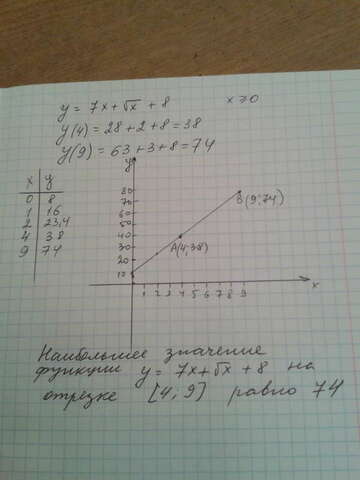 y = 7x+√x + 8 x⩾0
y(4) = 28+2+8 = 38
y(9) = 63+3+8 = 74
x y
0 8
1 16
2 23,4
4 38
9 74
y
80
70
60
50
40
30
20
10
B(9;74)
A(4;38)
1 2 3 4 5 6 7 8 9
x
Наибольшее значение
функции y = 7x+√x + 8 на
отрезке [4; 9] равно 74